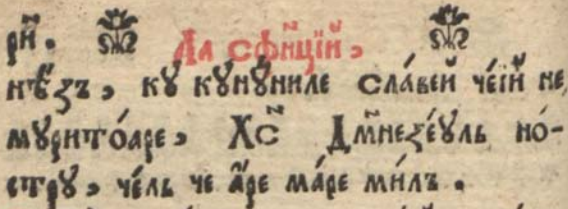 рѝй. Ла сфи́нцїй,
нѣ́зъ, кꙋ кꙋнꙋниле сла́вей че́їй не
мꙋрито́аре, Хс҃ Дм҃незе́ꙋль но́-
стрꙋ, че́ль че а́ре ма́ре ми́лъ.